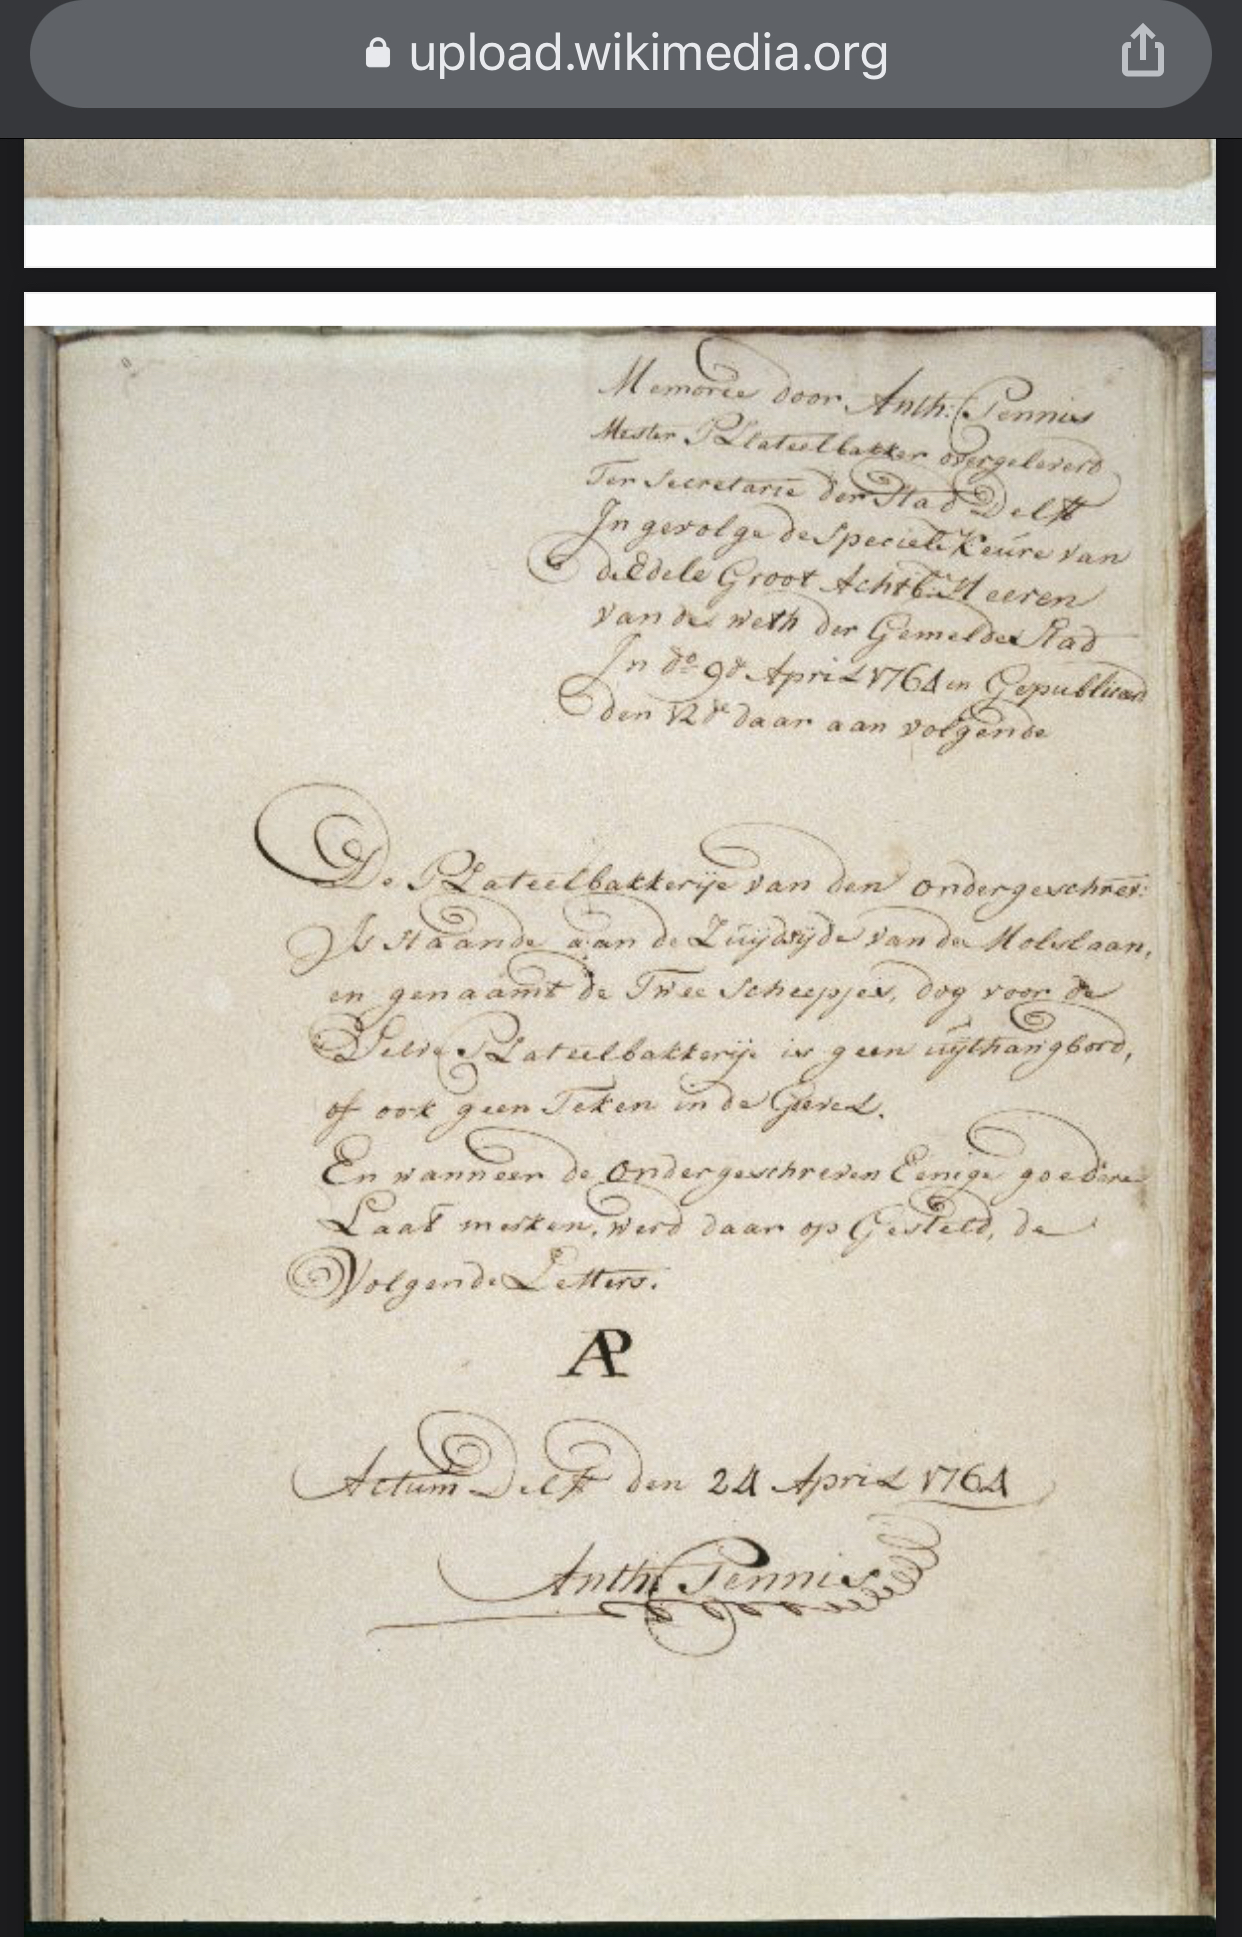 upload.wikimedia.org
Memorie door Anth: Pennis
Mester Plateelbakker overgeleverd
Ter Secretarie der Stad Delft
In gevolge de Speciele Keure van
de Edele Groot Achtb: Heeren
van de weth der Gemelde Stad
In do 9de April 1764 en Gepubliceerd
den 12de daar aan volgende
De Plateelbakkerije van den ondergeschrev:
Is staande aan de Zuijdzijde van de Molslaan,
en genaamt de Twee Scheepjes, dog voor de
Selve Plateelbakkerije is geen uijthangbord,
of ook geen Teken in de Gevel.
En wanneer de ondergeschreven Eenige goedere
Laat merken, werd daar op Gesteld, de
Volgende Letters.
AP
Actum Delft den 24 April 1764
Anth: Pennis